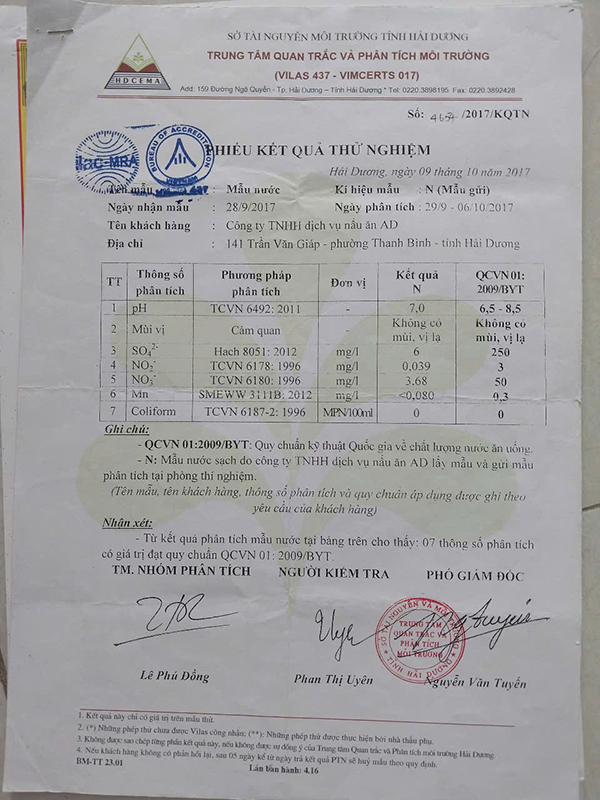 SỞ TÀI NGUYÊN MÔI TRƯỜNG TỈNH HẢI DƯƠNG
TRUNG TÂM QUAN TRẮC VÀ PHÂN TÍCH MÔI TRƯỜNG
(VILAS 437 - VIMCERTS 017)
HDCEMA
Add: 159 Đường Ngô Quyền - Tp. Hải Dương – Tỉnh Hải Dương * Tel: 0220.3898195 Fax: 0220.3892428
Số: /2017/KQTN
ilac-MRA
BUREAU OF ACCREDITATION
VIETNAM
PHIẾU KẾT QUẢ THỬ NGHIỆM
Hải Dương, ngày 09 tháng 10 năm 2017
Tên mẫu : Mẫu nước Kí hiệu mẫu : N (Mẫu gửi)
Ngày nhận mẫu : 28/9/2017 Ngày phân tích : 29/9 - 06/10/2017
Tên khách hàng : Công ty TNHH dịch vụ nấu ăn AD
Địa chỉ : 141 Trần Văn Giáp - phường Thanh Bình - tỉnh Hải Dương
TT Thông số phân tích Phương pháp phân tích Đơn vị Kết quả N QCVN 01: 2009/BYT
1 pH TCVN 6492: 2011 - 7,0 6,5 - 8,5
2 Mùi vị Cảm quan - Không có mùi, vị lạ Không có mùi, vị lạ
3 SO₄²⁻ Hach 8051: 2012 mg/l 6 250
4 NO₂⁻ TCVN 6178: 1996 mg/l 0,039 3
5 NO₃⁻ TCVN 6180: 1996 mg/l 3.68 50
6 Mn SMEWW 3111B: 2012 mg/l <0,080 0,3
7 Coliform TCVN 6187-2: 1996 MPN/100ml 0 0
Ghi chú:
- QCVN 01:2009/BYT: Quy chuẩn kỹ thuật Quốc gia về chất lượng nước ăn uống.
- N: Mẫu nước sạch do công ty TNHH dịch vụ nấu ăn AD lấy mẫu và gửi mẫu
phân tích tại phòng thí nghiệm.
(Tên mẫu, tên khách hàng, thông số phân tích và quy chuẩn áp dụng được ghi theo
yêu cầu của khách hàng)
Nhận xét:
- Từ kết quả phân tích mẫu nước tại bảng trên cho thấy: 07 thông số phân tích
có giá trị đạt quy chuẩn QCVN 01: 2009/BYT.
TM. NHÓM PHÂN TÍCH NGƯỜI KIỂM TRA PHÓ GIÁM ĐỐC
SỞ TÀI NGUYÊN VÀ MÔI TRƯỜNG
TRUNG TÂM
QUAN TRẮC VÀ
PHÂN TÍCH
MÔI TRƯỜNG
TỈNH HẢI DƯƠNG
Lê Phú Đồng Phan Thị Uyên Nguyễn Văn Tuyến
1. Kết quả này chỉ có giá trị trên mẫu thử.
2. (*) Những phép thử chưa được Vilas công nhận; (**): Những phép thử được thực hiện bởi nhà thầu phụ.
3. Không được sao chép từng phần kết quả này, nếu không được sự đồng ý của Trung tâm Quan trắc và Phân tích môi trường Hải Dương.
4. Nếu khách hàng không có phản hồi lại, sau 05 ngày kể từ ngày trả kết quả PTN sẽ huỷ mẫu theo quy định.
BM-TT 23.01 Lần ban hành: 4.16